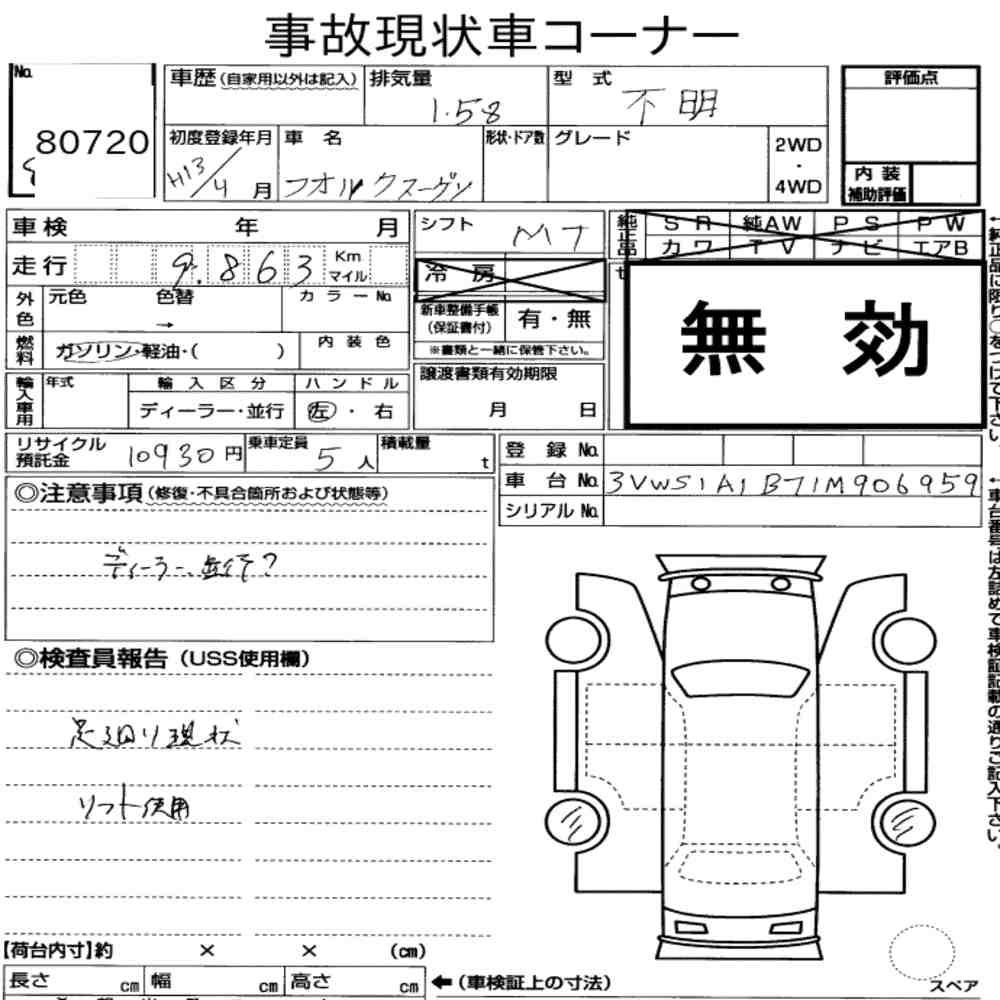 事故現状車コーナー
No.
80720
車歴(自家用以外は記入)
排気量
1.58
型 式
不明
評価点
初度登録年月
H13/4 月
車 名
フオルクスーゲン
形状・ドア数
グレード
2WD
・
4WD
内 装
補助評価
車検 年 月
シフト
MT
純正品
SR 純AW PS PW
カワ TV ナビ エアB
走行
9.863
Km
マイル
冷 房
外色
元色 色替
→
カラーNo.
新車整備手帳
(保証書付)
有・無
※書類と一緒に保管下さい。
無 効
燃料
ガソリン・軽油・( )
内装色
輸入車用
年式
輸入区分
ディーラー・並行
ハンドル
左・右
譲渡書類有効期限
月 日
リサイクル
預託金
10930円
乗車定員
5人
積載量
t
登 録 No.
車 台 No.
3VWS1A1B71M906959
シリアル No.
◎注意事項(修復・不具合箇所および状態等)
ディーラー、並行?
◎検査員報告(USS使用欄)
足廻り現状
リフト使用
【荷台内寸】約 × × (cm)
長さ cm 幅 cm 高さ cm
←(車検証上の寸法)
スペア
←純正品に限り○をつけて下さい。
←車台番号は左詰めで車検証記載の通りご記入下さい。